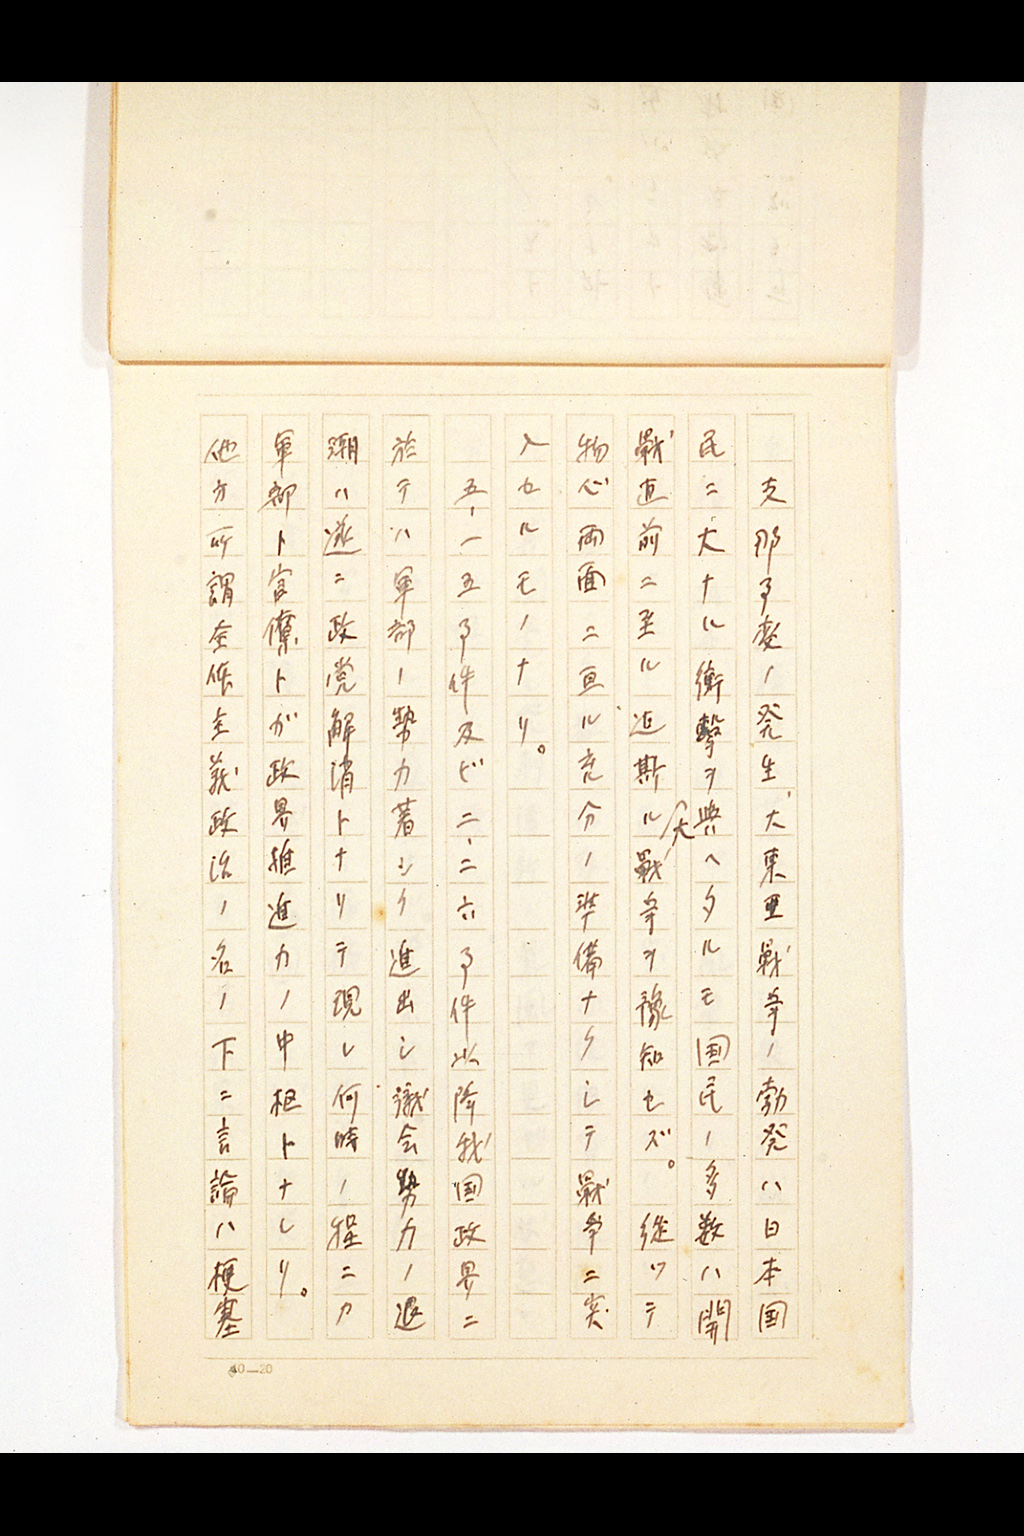 支那事変ノ発生、大東亜戦争ノ勃発ハ日本国
民ニ大ナル衝撃ヲ與ヘタルモ国民ノ多数ハ開
戦直前ニ至ル迄斯ル大戦争ヲ豫知セズ。従ツテ
物心両面ニ亘ル充分ノ準備ナクシテ戦争ニ突
入セルモノナリ。
五、一五事件及ビ二、二六事件以降我国政界ニ
於テハ軍部ノ勢力著シク進出シ議会勢力ノ退
潮ハ遂ニ政党解消トナリテ現レ何時ノ程ニカ
軍部ト官僚トガ政界推進力ノ中枢トナレリ。
他方所謂全体主義政治ノ名ノ下ニ言論ハ梗塞
40—20